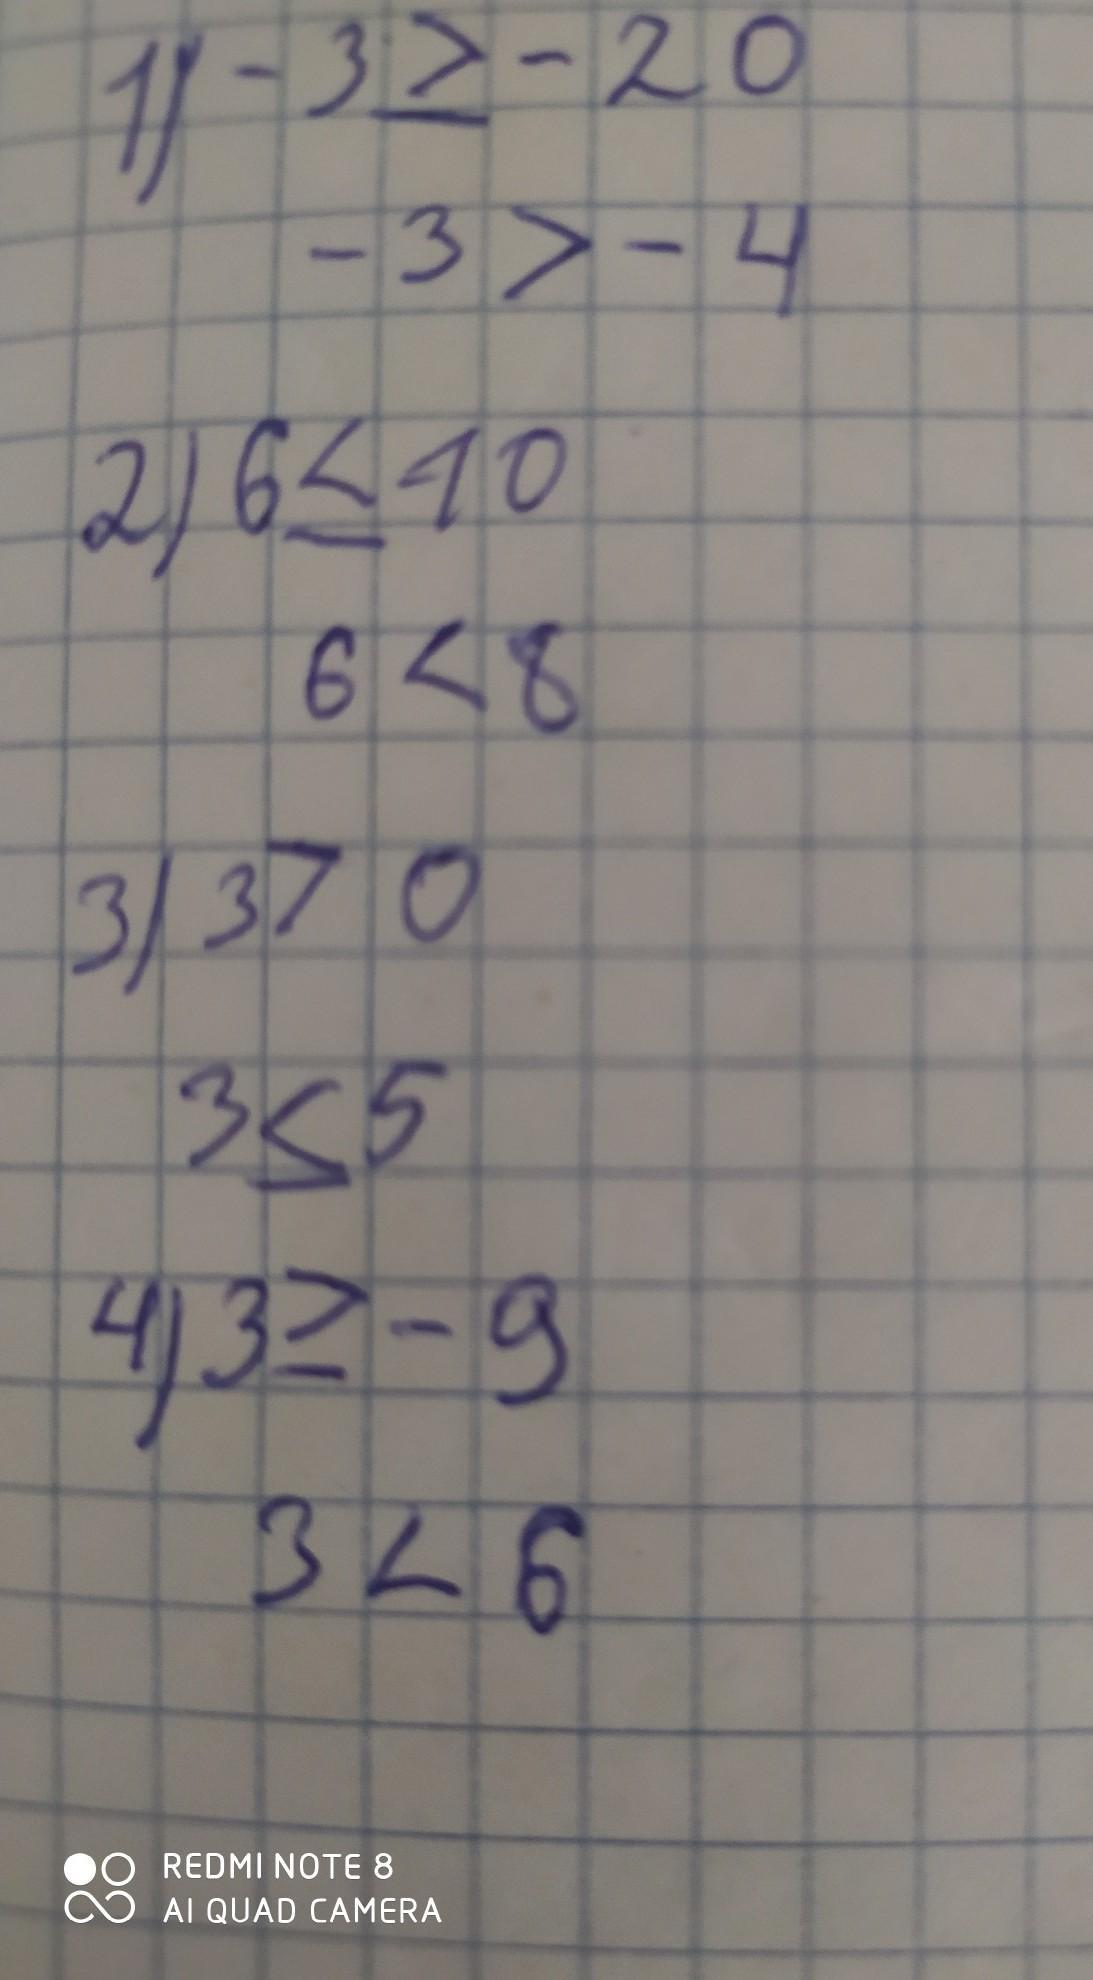 1) -3 ≥ -20
-3 > -4
2) 6 ≤ 10
6 < 8
3) 3 > 0
3 ≤ 5
4) 3 ≥ -9
3 < 6
REDMI NOTE 8
AI QUAD CAMERA